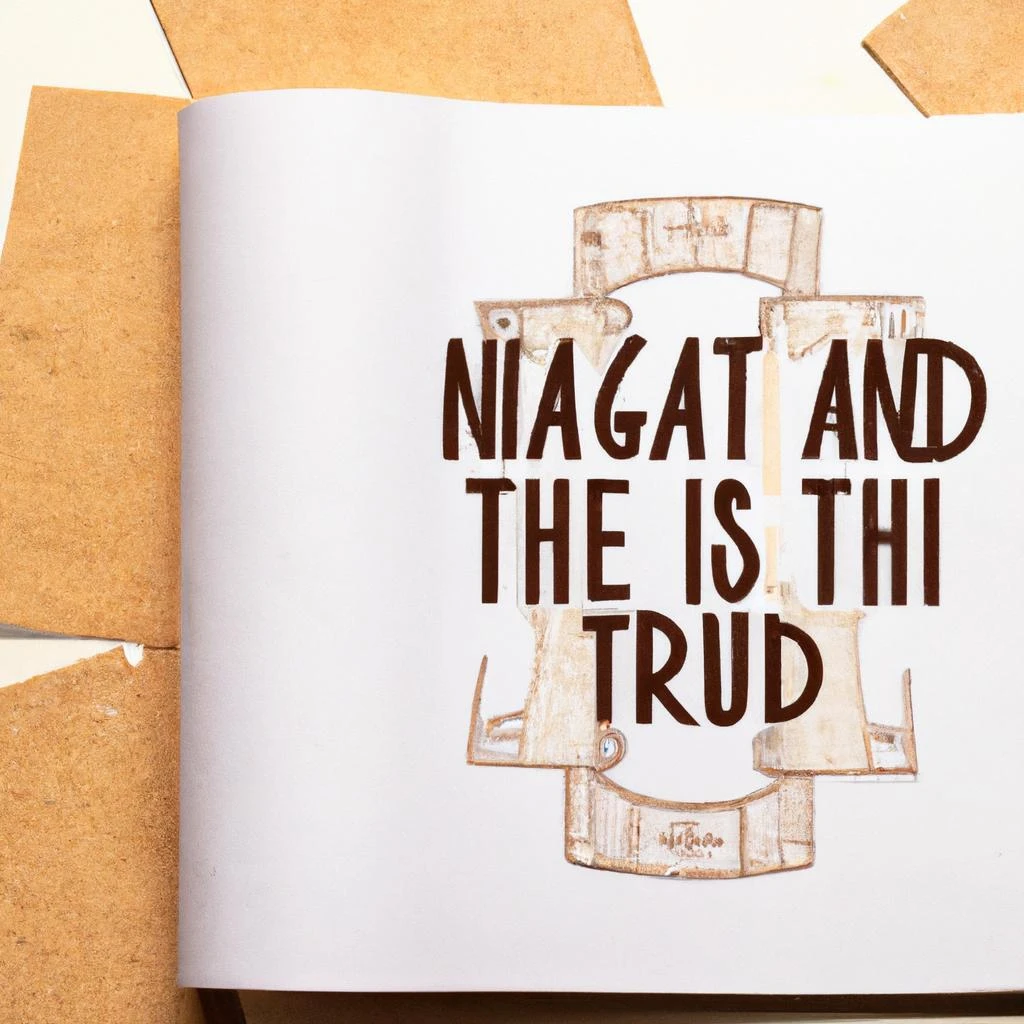 NIAGAT AND
THE IS THI
TRUD